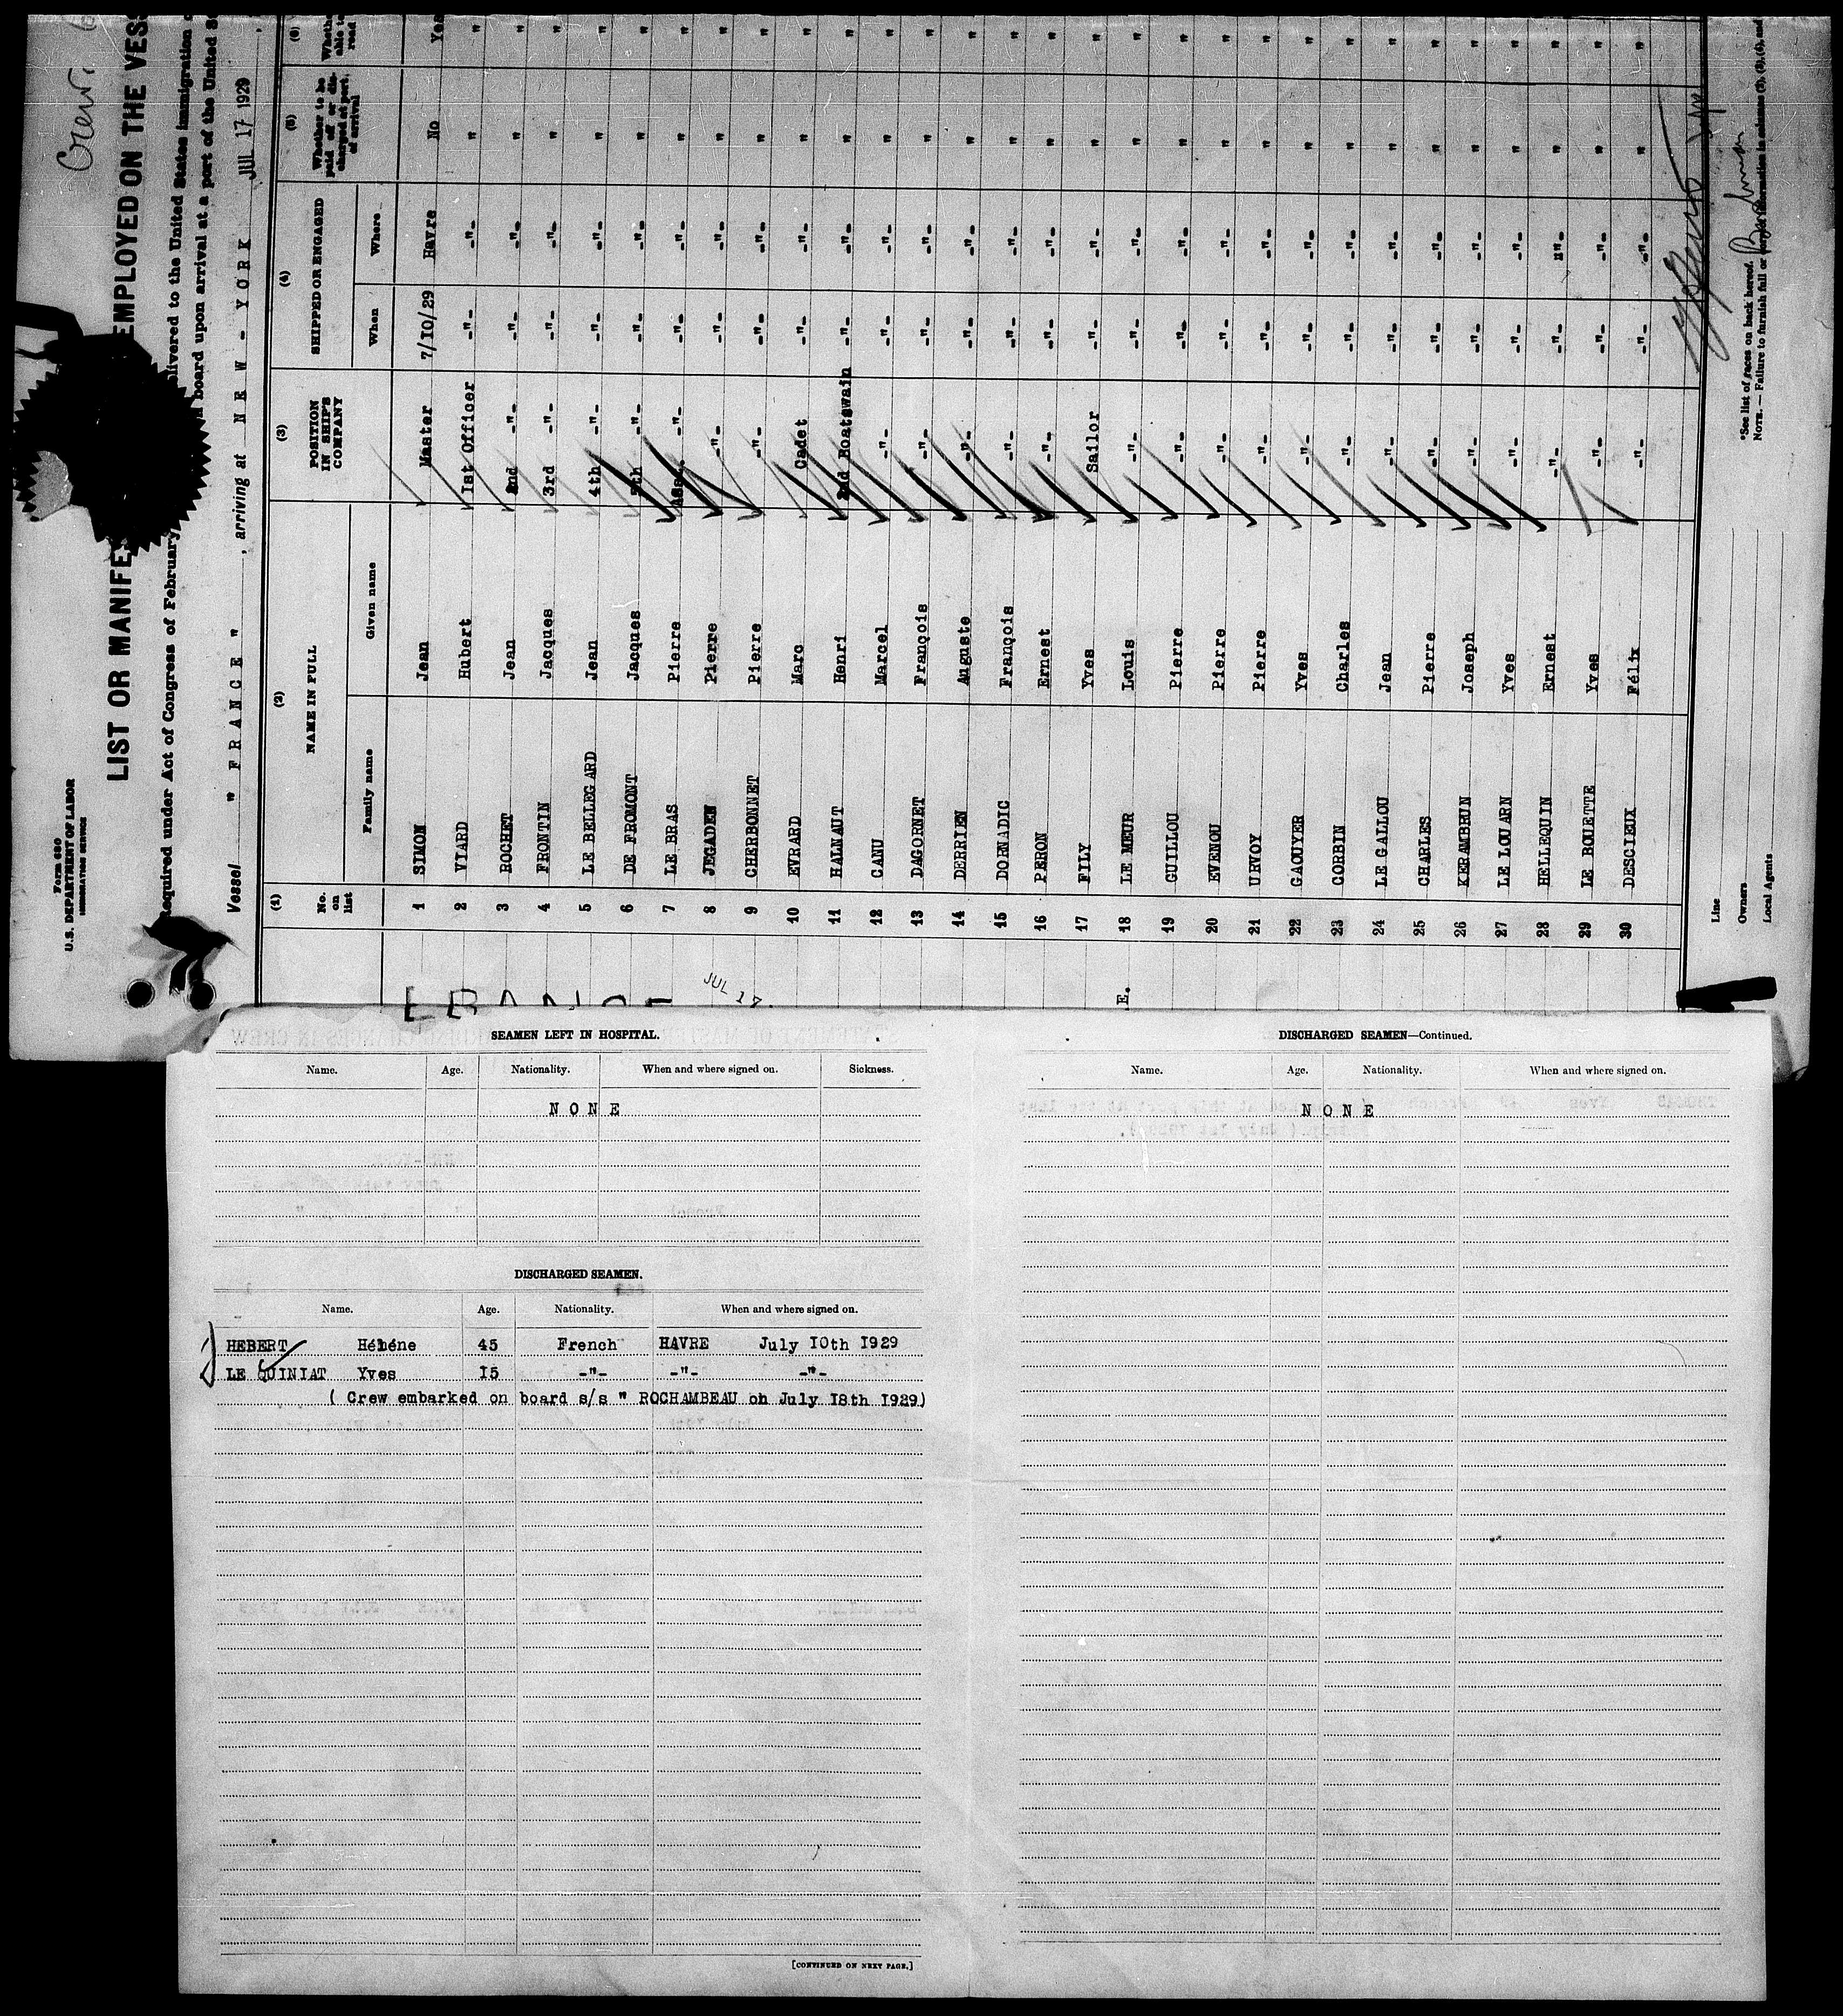 Crew
Form 680
U.S. DEPARTMENT OF LABOR
IMMIGRATION SERVICE
LIST OR MANIFE EMPLOYED ON THE VES
Required under Act of Congress of February elivered to the United States immigration
board upon arrival at a port of the United
Vessel " FRANCE " , arriving at NEW - YORK JUL 17 1929
(1) (2) (3) (4) (5) (6)
No. on list NAME IN FULL POSITION IN SHIP'S COMPANY SHIPPED OR ENGAGED Whether to be paid off or discharged at port of arrival Whether able to read
Family name Given name When Where
1 SIMON Jean Master 7/10/29 Havre No Yes
2 VIARD Hubert 1st Officer -"- -"- " "
3 ROCHET Jean 2nd -"- -"- -"- " "
4 FRONTIN Jacques 3rd -"- -"- -"- " "
5 LE BELLEGARD Jean 4th -"- -"- -"- " "
6 DE FROMONT Jacques 5th -"- -"- -"- " "
7 LE BRAS Pierre Ass. -"- -"- -"- " "
8 JEGADEN Pierre -"- -"- -"- " "
9 CHERBONNET Pierre -"- -"- -"- " "
10 EVRARD Marc Cadet -"- -"- " "
11 HALNAUT Henri 2nd Boatswain -"- -"- " "
12 CANU Marcel -"- -"- -"- " "
13 DAGORNET François -"- -"- -"- " "
14 DERRIEN Auguste -"- -"- -"- " "
15 DORNADIC François -"- -"- -"- " "
16 PERON Ernest -"- -"- -"- " "
17 FILY Yves Sailor -"- -"- " "
18 LE MEUR Louis -"- -"- -"- " "
19 GUILLOU Pierre -"- -"- -"- " "
20 EVENOU Pierre -"- -"- -"- " "
21 URVOY Pierre -"- -"- -"- " "
22 GAOUYER Yves -"- -"- -"- " "
23 CORBIN Charles -"- -"- -"- " "
24 LE GALLOU Jean -"- -"- -"- " "
25 CHARLES Pierre -"- -"- -"- " "
26 KERAMBRUN Joseph -"- -"- -"- " "
27 LE LOUARN Yves -"- -"- -"- " "
28 HELLEQUIN Ernest -"- -"- "- " "
29 LE BOUETTE Yves -"- -"- -"- " "
30 DESCIEUX Félix -"- -"- -"- " "
Line
Owners
Local Agents
*See list of races on back hereof.
NOTE. — Failure to furnish full or information in columns (2), (5), (6), and
FRANCE
JUL 17
E.
SEAMEN LEFT IN HOSPITAL.
Name. Age. Nationality. When and where signed on. Sickness.
NONE
DISCHARGED SEAMEN.
Name. Age. Nationality. When and where signed on.
HEBERT Héléne 45 French HAVRE July 10th 1929
LE QUINIAT Yves 15 -"- -"- -"-
( Crew embarked on board s/s " ROCHAMBEAU on July 18th 1929)
[CONTINUED ON NEXT PAGE.]
DISCHARGED SEAMEN—Continued.
Name. Age. Nationality. When and where signed on.
NONE